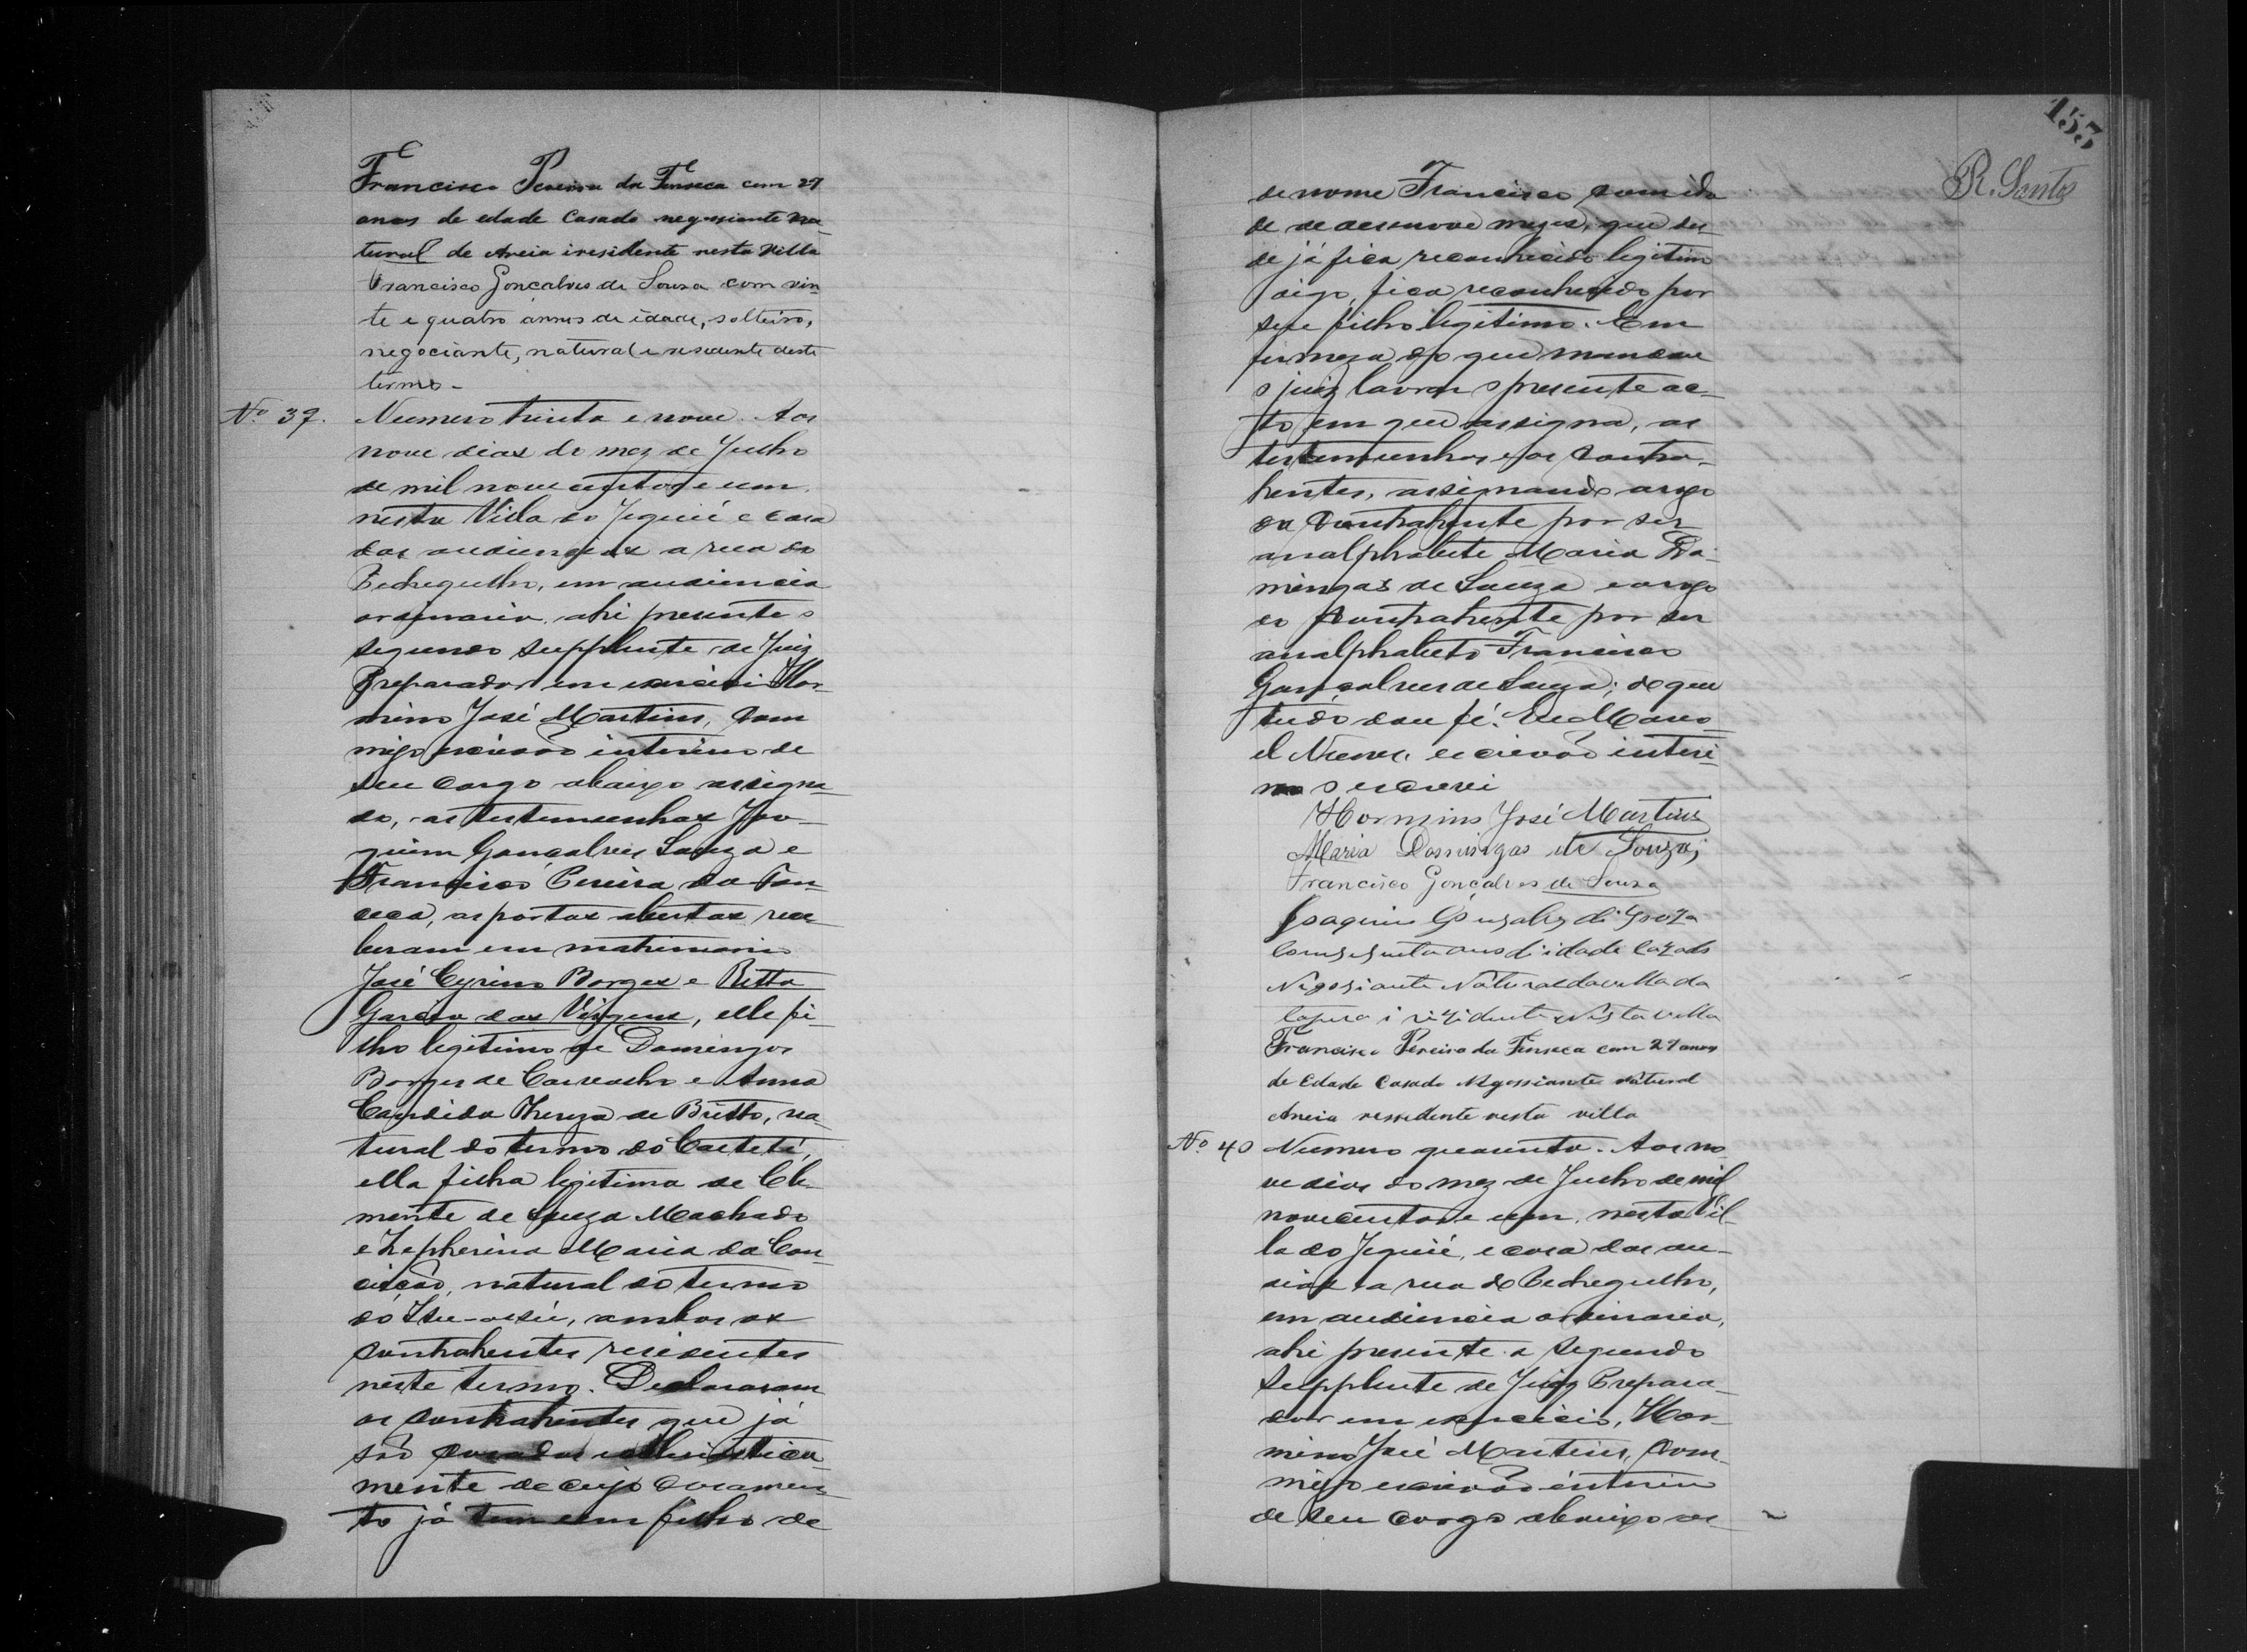 Francisco Pereira da Fonseca com 27
annos de edade Casado negossiante na-
tural de Areia iresidente nesta Villa
Francisco Gonçalves de Sousa com vin-
te e quatro annos de idade, solteiro,
negociante, natural e residente deste
termo-
Nº 39. Numero trinta e nove. Aos
nove dias do mez de Julho
de mil novecentos e um
nesta Villa do Jequié e casa
das audiencias a rua do
Pedregulho, em audiencia
ordinaria, ahi presente o
segundo supplente de Juiz
Preparador em exercicio Hor-
mino José Martins, com-
migo escrivão interino de
seu cargo abaixo assigna-
do, as testemunhas Joa-
quim Gonçalves Souza e
Francisco Pereira da Fon-
ceca, as portas abertas rece-
beram em matrimonio
José Cyrino Borges e Ritta
Garcia das Virgens, elle fi-
lho legitimo de Domingos
Borges de Carvalho e Anna
Candida Thereza de Britto, na-
tural do termo do Caeteté,
ella filha legitima de Cle-
mente de Souza Machado
e Zepherina Maria da Con-
ceição, natural do termo
do , ambos os
contrahentes residentes
neste termo. Declararam
os contrahentes que já
são casados ecclesiastica-
mente de cujo casamen-
to já tem um filho de
153
R. Santos
de nome Francisco com ida
de de desenove mezes, que des-
de já fica reconhecido legitimo
digo, fica reconhecido por
seu filho legitimo. Em
firmeza do que mandou
o juiz lavrar o presente ac-
to em que assigna, as
testemunhas e os contra-
hentes, assignando arogo
da contrahente por ser
analphabete Maria Do-
mingas de Souza e arogo
do contrahente por ser
analphabeto Francisco
Gonçalves de Souza; do que
tudo dou fé. Eu Mano-
el Nunes, escrivão interi-
no o escrevi
Hormino José Martins
Maria Domingas de Souza
Francisco Gonçalves de Sousa
Joaquim Gonsalves di Souza
com sesenta anos di idade Cazado
Negosiante Natural da villa da
i rizidente Nesta villa
Francisco Pereira da Fonseca com 27 annos
de Edade Casado Negossiante natural
Areia ressedente nesta villa
Nº 40 Numero quarenta. Aos no-
ve dias do mez de Julho de mil
novecentos e um, nesta Vil-
la do Jequié, e casa das au-
dias a rua do Pedregulho,
em audiencia ordinaria,
ahi presente o segundo
Supplente de Juiz Prepara-
dor em exercicio, Hor-
mino José Martins, com-
migo escrivão interino
de seu cargo abaixo as-